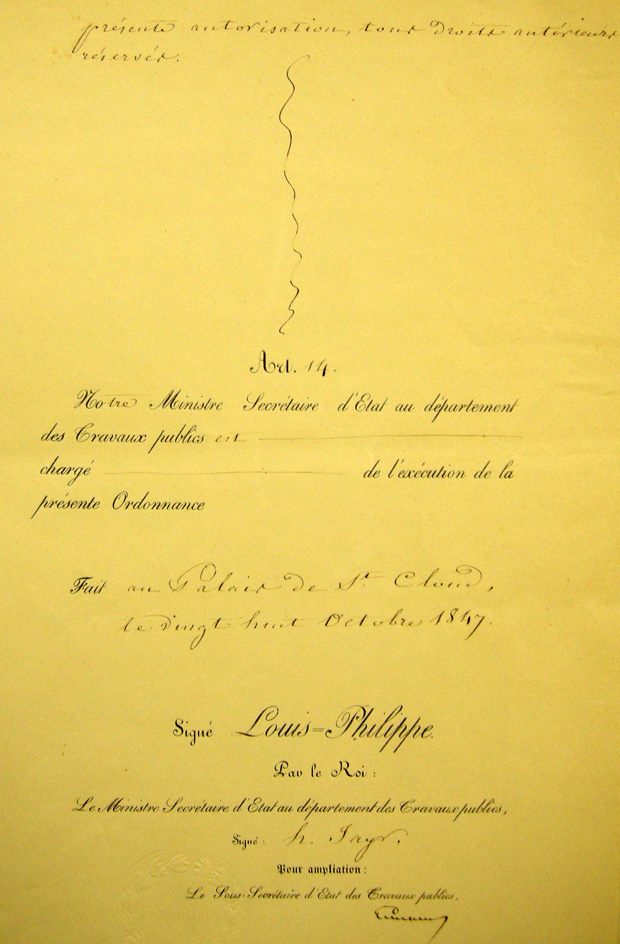 présente autorisation, tous droits antérieurs
réservés.
Art. 14.
Notre Ministre Secrétaire d'Etat au département
des Travaux publics est
chargé de l'exécution de la
présente Ordonnance
Fait au Palais de St Cloud,
le vingt huit Octobre 1847.
Signé Louis=Philippe.
Par le Roi :
Le Ministre Secrétaire d'Etat au département des Travaux publics,
Signé : h. Jayr.
Pour ampliation :
Le Sous-Secrétaire d'Etat des Travaux publics,